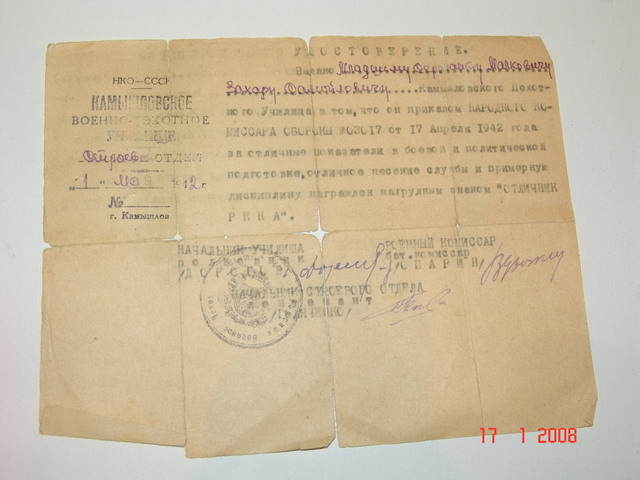 УДОСТОВЕРЕНИЕ.
НКО—СССР
КАМЫШЛОВСКОЕ
ВОЕННО-ПЕХОТНОЕ
УЧИЛИЩЕ
ОТДЕЛ
"1" мая 1942г.
№
г. Камышлов
Выдано Младшему
Захару Даниловичу....Камышловского Пехот-
ного Училища в том, что он приказом НАРОДНОГО КО-
МИССАРА ОБОРОНЫ №03017 от 17 Апреля 1942 года
за отличные показатели в боевой и политической
подготовке, отличное несение службы и примерную
дисциплину награжден нагрудным знаком "ОТЛИЧНИК
РККА".
НАЧАЛЬНИК УЧИЛИЩА
полковник
ВОЕННЫЙ КОМИССАР
бат.комиссар
/ОПАРИН/
НАЧАЛЬНИК СТРОЕВОГО ОТДЕЛА
17 1 2008